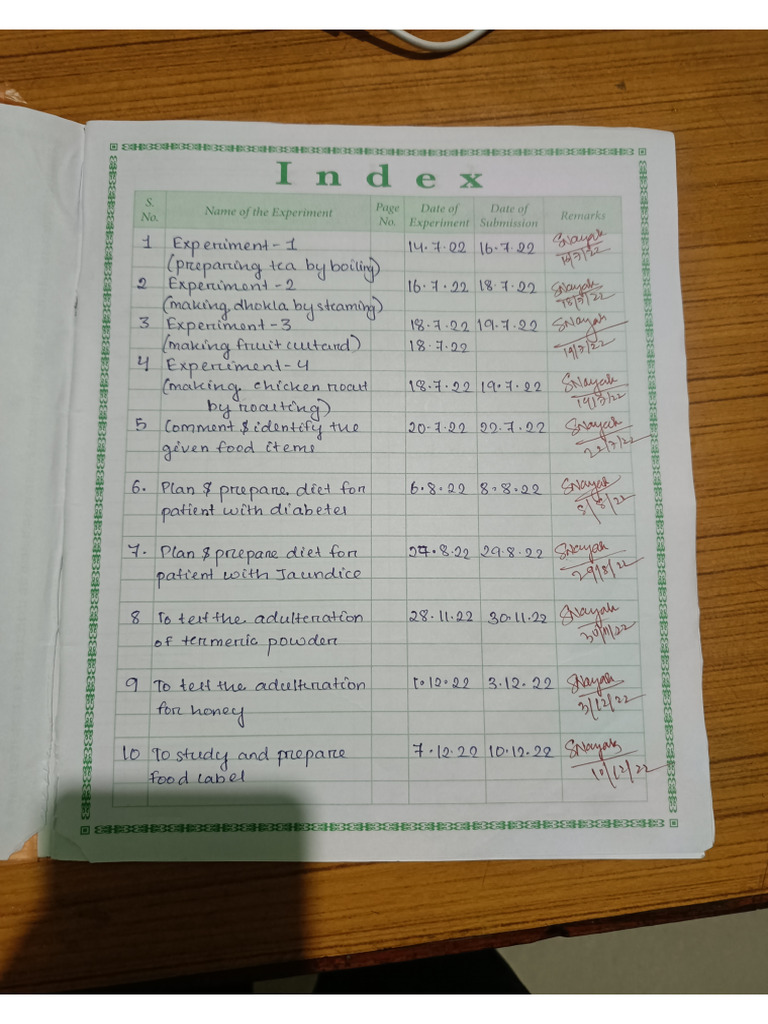 Index
S. No. Name of the Experiment Page No. Date of Experiment Date of Submission Remarks
1 Experiment-1 14.7.22 16.7.22 SNayak
(preparing tea by boiling) 16/7/22
2 Experiment-2 16.7.22 18.7.22 SNayak
(making dhokla by steaming) 18/7/22
3 Experiment-3 18.7.22 19.7.22 SNayak
(making fruit custard) 18.7.22 19/7/22
4 Experiment-4
(making chicken roast 18.7.22 19.7.22 SNayak
by roasting) 19/7/22
5 Comment & identify the 20.7.22 22.7.22 SNayak
given food items 22/7/22
6. Plan & prepare diet for 6.8.22 8.8.22 SNayak
patient with diabetes 8/8/22
7. Plan & prepare diet for 27.8.22 29.8.22 SNayak
patient with Jaundice 29/8/22
8 To test the adulteration 28.11.22 30.11.22 SNayak
of termeric powder 30/11/22
9 To test the adultration 1.12.22 3.12.22 SNayak
for honey 3/12/22
10 To study and prepare 7.12.22 10.12.22 SNayak
food label 10/12/22